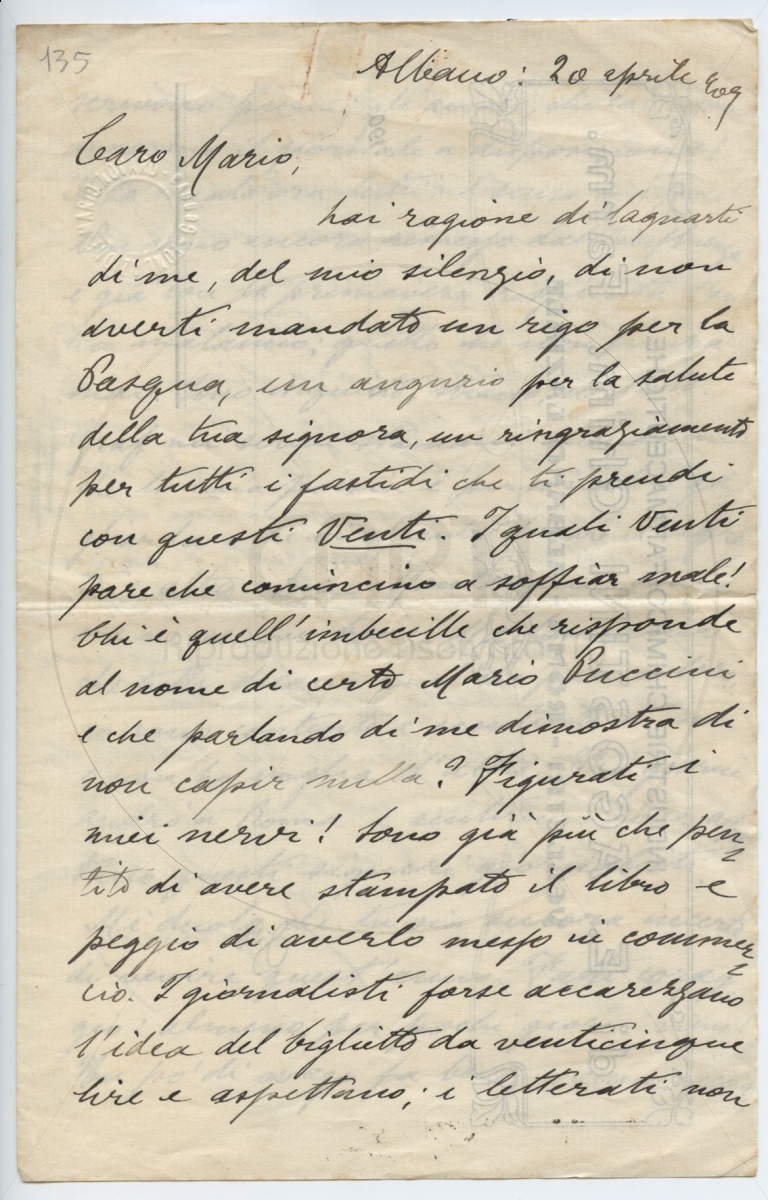 135
Albano: 20 aprile 909
Caro Mario,
hai ragione di lagnarti
di me, del mio silenzio, di non
averti mandato un rigo per la
Pasqua, un augurio per la salute
della tua signora, un ringraziamento
per tutti i fastidi che ti prendi
con questi Venti. I quali Venti
pare che comincino a soffiar male!
Chi è quell'imbecille che risponde
al nome di certo Mario Puccini
e che parlando di me dimostra di
non capir nulla? Figurati i
miei nervi! Sono già più che pen=
tito di avere stampato il libro e
peggio di averlo messo in commer=
cio. I giornalisti forse accarezzano
l'idea del biglietto da venticinque
lire e aspettano; i letterati non